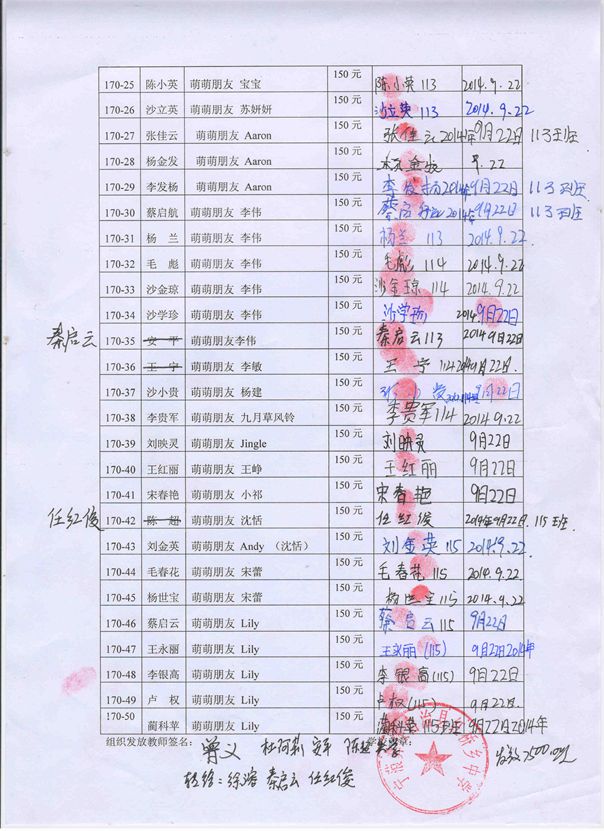 170-25 陈小英 萌萌朋友 宝宝 150 元 陈小英 113 2014.9.22
170-26 沙立英 萌萌朋友 苏妍妍 150 元 沙立英 113 2014.9.22
170-27 张佳云 萌萌朋友 Aaron 150 元 张佳云 2014年9月22日 113班
170-28 杨金发 萌萌朋友 Aaron 150 元 9.22
170-29 李发杨 萌萌朋友 Aaron 150 元 李发杨 2014年9月22日 113班
170-30 蔡启航 萌萌朋友 李伟 150 元 蔡启航 2014年9月22日 113班
170-31 杨 兰 萌萌朋友 李伟 150 元 杨兰 113 2014.9.22
170-32 毛 彪 萌萌朋友 李伟 150 元 毛彪 114 2014.9.22
170-33 沙金琼 萌萌朋友 李伟 150 元 沙金琼 114 2014.9.22
170-34 沙学珍 萌萌朋友 李伟 150 元 沙学珍 2014.9月22日
秦启云 170-35 安 平 萌萌朋友李伟 150 元 秦启云 113 2014年9月22日
170-36 王 宁 萌萌朋友 李敏 150 元 王宁 114 2014年9月22日.
170-37 沙小贵 萌萌朋友 杨建 150 元 9月22日
170-38 李贵军 萌萌朋友 九月草风铃 150 元 李贵军 114 2014.9.22
170-39 刘映灵 萌萌朋友 Jingle 150 元 刘映灵 9月22日
170-40 王红丽 萌萌朋友 王峥 150 元 王红丽 9月22日
170-41 宋春艳 萌萌朋友 小祁 150 元 宋春艳 9月22日
任红俊 170-42 陈 超 萌萌朋友 沈恬 150 元 任红俊 2014年9月22日. 115班.
170-43 刘金英 萌萌朋友 Andy （沈恬） 150 元 刘金英 115 2014.9.22
170-44 毛春花 萌萌朋友 宋蕾 150 元 毛春花 115 2014.9.22
170-45 杨世宝 萌萌朋友 宋蕾 150 元 杨世宝 115 2014.9.22
170-46 蔡启云 萌萌朋友 Lily 150 元 蔡启云 115 9月22日
170-47 王永丽 萌萌朋友 Lily 150 元 王永丽 (115) 9月22日2014年
170-48 李银高 萌萌朋友 Lily 150 元 李银高 (115) 9月22日
170-49 卢 权 萌萌朋友 Lily 150 元 卢权 (115) 9月22日.
170-50 蔺科苹 萌萌朋友 Lily 150 元 蔺科苹 115班 9月22日2014年
组织发放教师签名： 曾义 章：
转给：徐 秦启云 任红俊